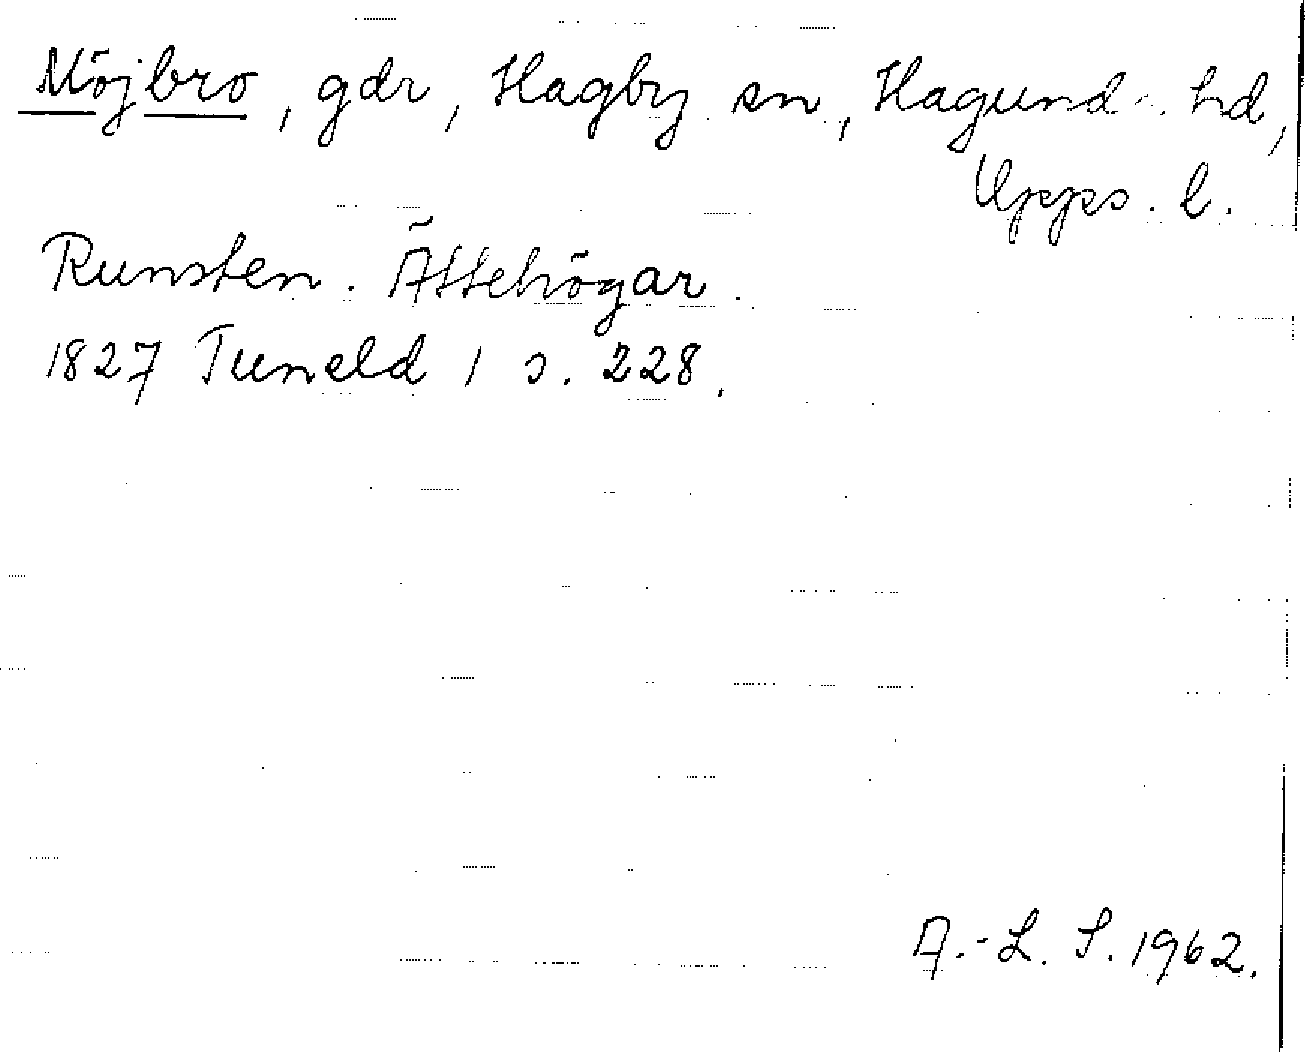 Möjbro, gdr, Hagby sn, Hagund. hd,
Upps. l.
Runsten. Ättehögar.
1827 Tuneld 1 s. 228.
A.-L. S. 1962.